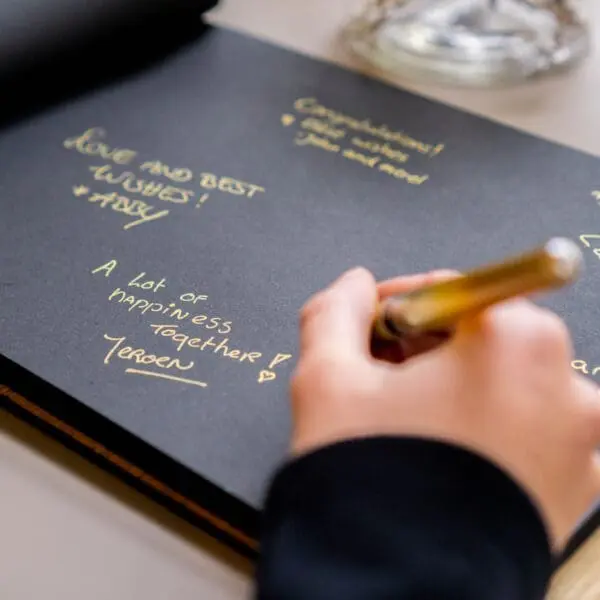 LOVE AND BEST
WISHES!
* ABBY
Congratulations!
* Best wishes
John and more!
A Lot OF
happiness
Together!
Jeroen